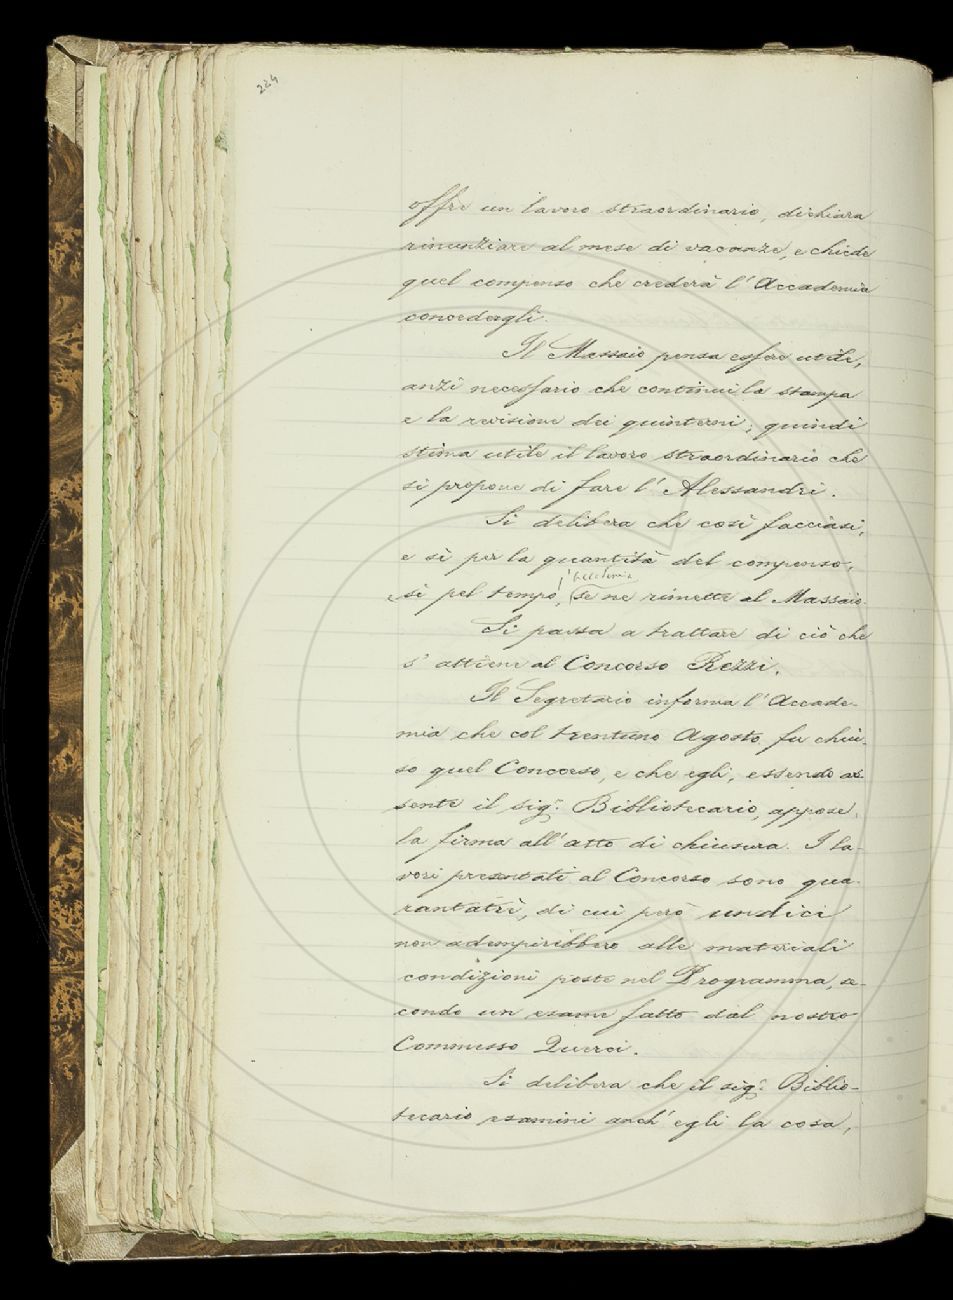 224
offre un lavoro straordinario, dichiara
rinunziare al mese di vacanze, e chiede
quel compenso che crederà l'Accademia
concedergli.
Il Massaio pensa essere utile,
anzi necessario che continui la stampa
e la revisione dei quinterni; quindi
stima utile il lavoro straordinario che
si propone di fare l'Alessandri.
Si delibera che così facciasi;
e sì per la quantità del compenso,
l'Accademia
e sì pel tempo, se ne rimette al Massaio.
Si passa a trattare di ciò che
s'attiene al Concorso Rezzi.
Il Segretario informa l'Accade-
mia che col trentuno Agosto, fu chiu-
so quel Concorso, e che egli, essendo as-
sente il sigr. Bibliotecario, appose
la firma all'atto di chiusura. I la-
vori presentati al Concorso sono qua-
rantatrè, di cui però undici
non adempirebbero alle materiali
condizioni poste nel Programma, se-
condo un esame fatto dal nostro
Commesso Querci.
Si delibera che il sigr. Biblio-
tecario esamini anch'egli la cosa,